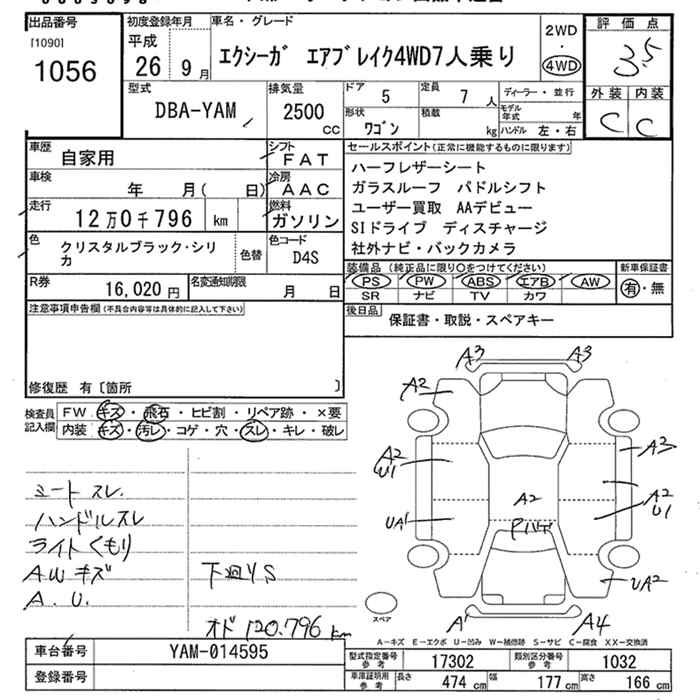 出品番号
[1090]
1056
初度登録年月
平成
26 9月
車名・グレード
エクシーガ エアブレイク4WD7人乗り
2WD
・
4WD
評価点
3.5
外装 内装
C C
型式
DBA-YAM
排気量
2500
CC
ドア 5
定員 7人
形状 ワゴン
積載 kg
ディーラー・並行
モデル年式 年
ハンドル 左・右
車歴 自家用
シフト FAT
車検 年 月( 日)
冷房 AAC
走行 12万0千796 km
燃料 ガソリン
色 クリスタルブラック・シリカ
色替
色コード D4S
R券 16,020円
名変通知期限 月 日
セールスポイント(正常に機能するものに限ります)
ハーフレザーシート
ガラスルーフ パドルシフト
ユーザー買取 AAデビュー
SIドライブ ディスチャージ
社外ナビ・バックカメラ
装備品 (純正品に限り○をつけてください)
PS PW ABS エアB AW
SR ナビ TV カワ
新車保証書
有・無
後日品 保証書・取説・スペアキー
注意事項申告欄(不具合内容等は具体的に記入して下さい)
修復歴 有〔箇所 〕
検査員記入欄
FW. キズ・飛石・ヒビ割・リペア跡・×要
内装 キズ・汚レ・コゲ・穴・スレ・キレ・破レ
シートスレ.
ハンドルスレ
ライトくもり
AWキズ
A.U.
下廻りS
オド 120.796 km
A3 A3
A2
A2
U1
UA1
A2
A3
A2
U1
UA2
A1 A4
スペア
A−キズ E−エクボ U−凹み W−補修跡 S−サビ C−腐食 XX−交換済
車台番号 YAM-014595
登録番号
型式指定番号 参考 17302
類別区分番号 参考 1032
車庫証明用 参考 長さ 474 cm 幅 177 cm 高さ 166 cm